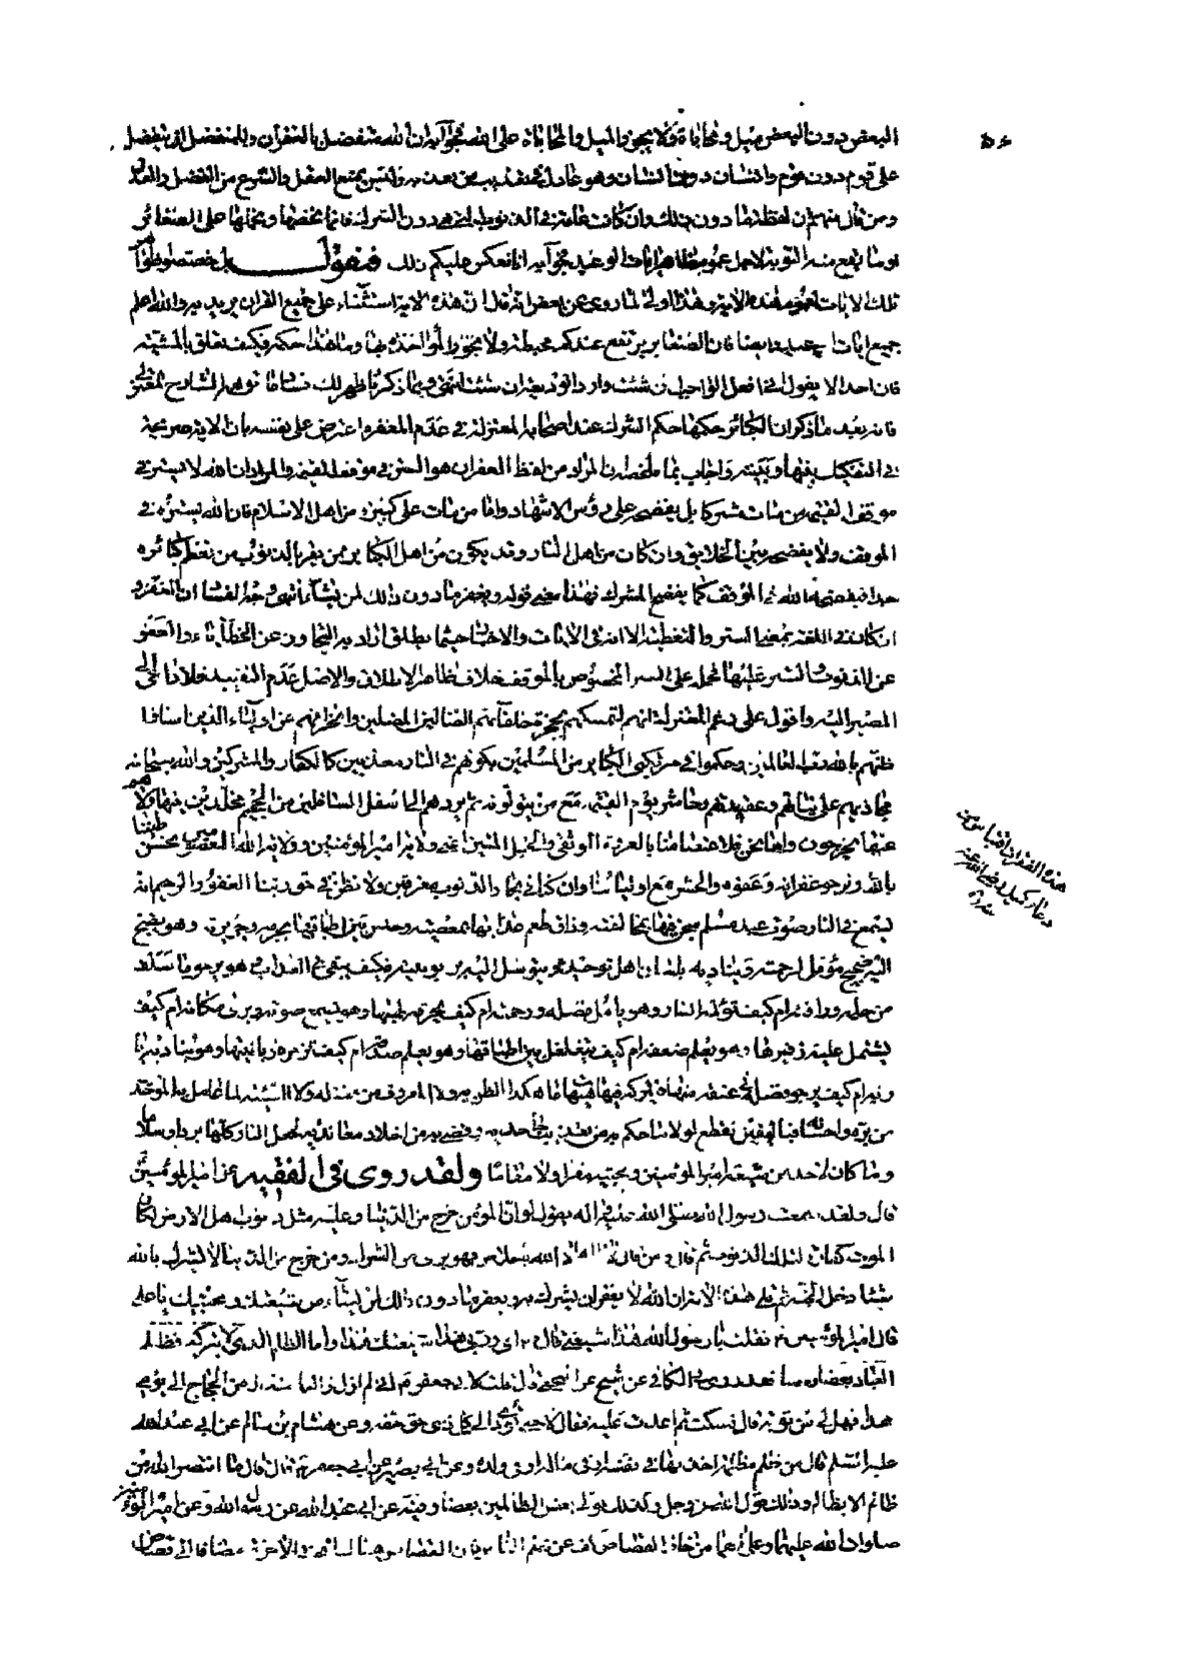 البعض دون البعض ميل ومحاباة ولا يجوز الميل والمحاباة على الله فجوابه ان الله متفضل بالغفران وللمتفضل ان يتفضل
على قوم دون قوم وانسان دون انسان وهو عادل في تعذيب من يعذبه وليس يمنع العقل والشرع من الفضل والعدل
ومن قال منهم ان لفظة ما دون ذلك وان كانت عامة في الذنوب التي هي دون الشرك فانما نخصها ونحملها على الصغائر
او ما يقع منه التوبة لاجل عموم ظاهر ايات الوعيد فجوابه انا نعكس عليكم ذلك فنقول بل خصصوا ظواهر
تلك الايات لعموم هذه الاية وهذا اولى لما روى عن بعض انه قال ان هذه الاية استثناء على جميع القران يريد به والله اعلم
جميع ايات الوعيد وايضا فان الصغاير يقع عندكم محبطة ولا يجوز المؤاخذة بها وما هذا حكمه فكيف تعلق بالمشية
فان احدا لا يقول اني افعل الواجب ان شئت وارد الوديعة ان شئت انتهى وبما ذكرنا ظهر لك
فانه بعد ما ذكر ان الكبائر حكمها حكم الشرك عند اصحابه المعتزلة في عدم المغفرة اعترض على نفسه بان الاية صريحة
في التفكيك بينها وبينه واجاب بما ملخصه ان المراد من لفظ الغفران هو الستر في موقف القيمة والمراد ان الله لا يستر في
موقف القيمة من مات مشركا بل يفضحه على رؤس الاشهاد واما من مات على كبيرة من اهل الاسلام فان الله يستره في
الموقف ولا يفضحه بين الخلايق وان كان من اهل النار وقد يكون من اهل الكباير ممن يقر بالذنوب من تعظم كبائره
جدا فيفضحه الله في الموقف كما يفضح المشرك فهذا معنى قوله ويغفر ما دون ذلك لمن يشاء انتهى وجه الفساد ان المغفرة
ان كانت في اللغة بمعنى الستر والتغطية الا انه في الايات والاخبار حيثما يطلق يراد به التجاوز عن الخطايا والعفو
عن الذنوب والستر عليها فحمله على الستر المخصوص بالموقف خلاف ظاهر الاطلاق والاصل عدم التقييد فلا داعي الى
المصير اليه واقول على رغم المعتزلة انهم لتمسكهم بحجزة خلفائهم الضالين المضلين وانحرافهم عن اولياء الدين اساؤا
ظنهم بالله رب العالمين وحكموا في مرتكبي الكباير من المسلمين بكونهم في النار معذبين كالكفار والمشركين والله سبحانه
مجازيهم على نياتهم وعقيدتهم وحاشرهم يوم القيمة مع من يتولونه ثم يردهم الى اسفل السافلين من الجحيم مخلدين فيها ولا هم
عنها يخرجون واما نحن فلاعتصامنا بالعروة الوثقى والحبل المتين اعنى ولاية امير المؤمنين وولاية اله المعصومين نحسن ظننا
بالله ونرجو غفرانه وعفوه والحشر مع اوليائه وان كنا في بحار الذنوب مغرقين ولا نظن في حق ربنا الغفور الرحيم انه
يستمع في النار صوت عبد مسلم سجن فيها بمخالفته وذاق طعم عذابها بمعصيته وحبس بين اطباقها بجرمه وجريرته وهو يضج
اليه ضجيج مؤمل لرحمته ويناديه بلسان اهل توحيده ويتوسل اليه بربوبيته فكيف يبقى في العذاب وهو يرجو ما سلف
من حلمه ورافته ام كيف تؤلمه النار وهو يامل فضله ورحمته ام كيف يحرقه لهيبها وهو يسمع صوته ويرى مكانه ام كيف
يشتمل عليه زفيرها وهو يعلم ضعفه ام كيف يتغلغل بين اطباقها وهو يعلم صدقه ام كيف تزجره زبانيتها وهو يناديه يا
ربه ام كيف يرجو فضله في عتقه منها فيتركه فيها هيهات ما هكذا الظن به ولا المعروف من فضله ولا مشبه لما عامل به الموحدين
من بره واحسانه فباليقين نقطع لولا ما حكم به من تعذيب جاحديه وقضى به من اخلاد معانديه لجعل النار كلها بردا وسلاما
وما كان لاحد من شيعة امير المؤمنين ومحبيه مقرا ولا مقاما ولقد روى في الفقيه عن امير المؤمنين
قال ولقد سمعت رسول الله صلى الله عليه واله يقول لو ان المؤمن خرج من الدنيا وعليه مثل ذنوب اهل الارض لكان
الموت كفارة لتلك الذنوب ثم قال ومن قال لا اله الا الله باخلاص فهو برئ من الشرك ومن خرج من الدنيا لا يشرك بالله
شيئا دخل الجنة ثم تلى هذه الاية ان الله لا يغفر ان يشرك به ويغفر ما دون ذلك لمن يشاء من شيعتك ومحبيك يا علي
قال امير المؤمنين فقلت يا رسول الله هذا لشيعتي قال اي وربي هذا لشيعتك هذا واما الظلم الذي لا يترك فظلم
العباد بعضهم بعضا روى في الكافي عن شيخ من النخع قال قلت لابي جعفر اني لم ازل واليا منذ زمن الحجاج الى يومي
هذا فهل لي من توبة قال فسكت ثم اعدت عليه فقال لا حتى تؤدي الى كل ذي حق حقه وعن هشام بن سالم عن ابي عبد الله
عليه السلام قال من ظلم مظلمة اخذ بها في نفسه او في ماله او في ولده وعن ابي بصير عن ابي جعفر قال قال ما انتصر الله من
ظالم الا بظالم وذلك قول الله عز وجل وكذلك نولي بعض الظالمين بعضا وفيه عن ابي عبد الله عن رسول الله وعن امير المؤمنين
صلوات الله عليهما وعلى الهما من خاف القصاص كف عن ظلم الناس
هذه الفقرات اقتباس من
دعاء كميل رضي الله عنه
منه